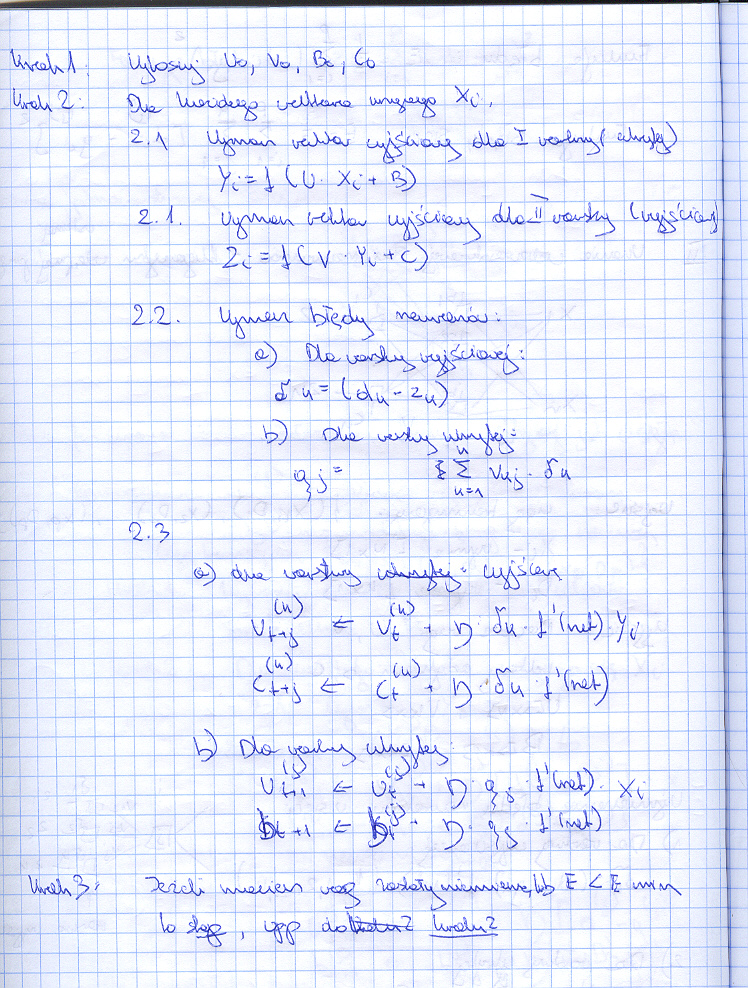 Krok 1: Wylosuj U₀, V₀, B₀, C₀
Krok 2: Dla każdego wektora uczącego Xi,
2.1 Wyznacz wektor wyjściowy dla I warstwy (ukrytej)
Yi = f (U · Xi + B)
2.1. Wyznacz wektor wyjściowy dla II warstwy (wyjściowej)
Zi = f (V · Yi + C)
2.2. Wyznacz błędy neuronów:
a) Dla warstwy wyjściowej:
δk = (dk - zk)
b) Dla warstwy ukrytej:
qj = Σ_{k=1}^{k} Vkj · δk
2.3
a) dla warstwy wyjściowej
V_{t+j}^{(k)} ← V_t^{(k)} + η · δk · f'(net) · Yi
C_{t+j}^{(k)} ← C_t^{(k)} + η · δk · f'(net)
b) Dla warstwy ukrytej:
U_{j+1}^{(j)} ← U_t^{(j)} + η · qj · f'(net) · Xi
b_{t+1} ← b_t^{(j)} + η · qj · f'(net)
Krok 3: Jeżeli macierz wag zostały niezmienione lub E < E min
to stop, wpp do kroku 2